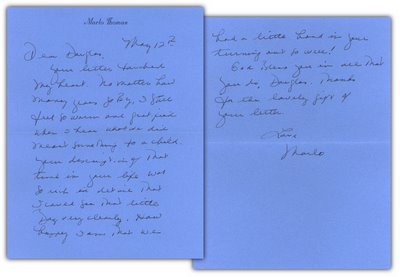 Marlo Thomas
May 12th
Dear Douglas,
Your letter touched
my heart. No matter how
many years go by, I still
feel so warm and
when I hear what we did
meant something to a child.
Your description of that
time in your life was
so rich in detail that
I could see that little
boy very clearly. How
happy I am that we
had a little hand in your
turning out so well!
God bless you in all that
you do, Douglas. Thanks
for the lovely gift of
your letter.
Love
Marlo